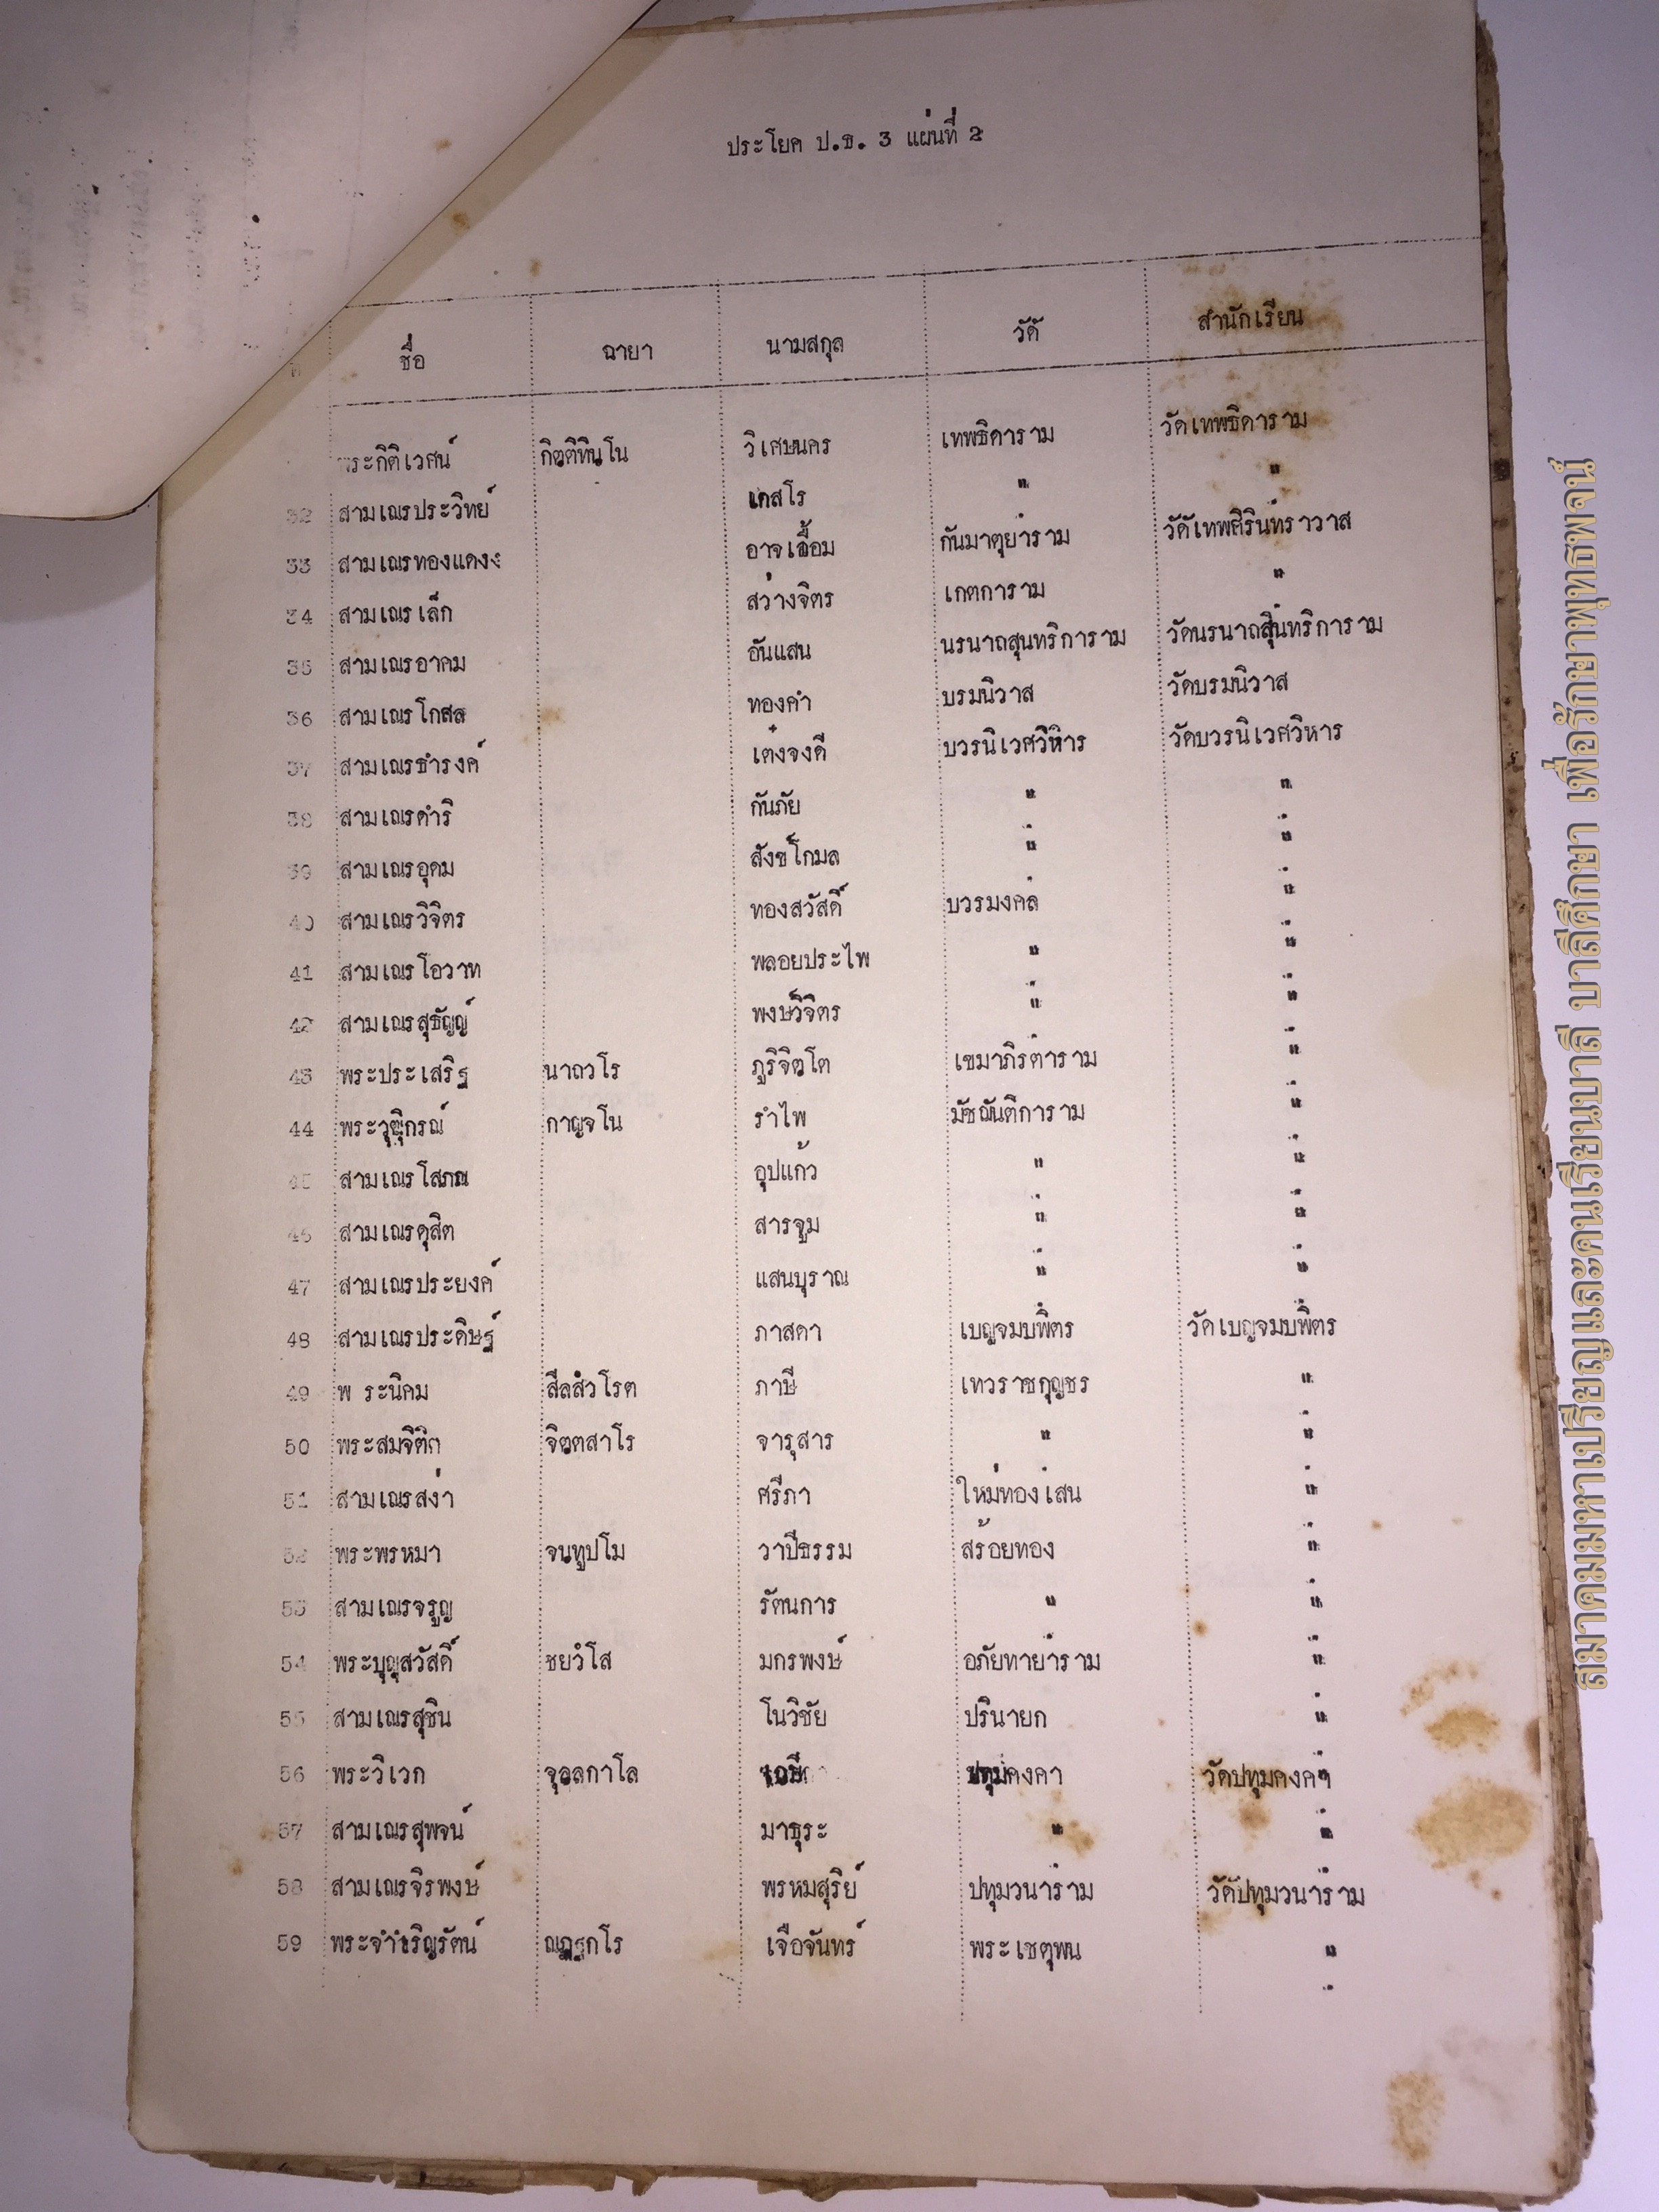 ประโยค ป.ธ. 3 แผ่นที่ 2
ชื่อ ฉายา นามสกุล วัด สำนักเรียน
พระกิติเวศน์ กิตติทินโน วิเศษนคร เทพธิดาราม วัดเทพธิดาราม
32 สามเณรประวิทย์ เกสโร " "
33 สามเณรทองแดง อาจเอื้อม กันมาตุยาราม วัดเทพศิรินทราวาส
34 สามเณรเล็ก สว่างจิตร เกตการาม "
35 สามเณรอาคม อันแสน นรนาถสุนทริการาม วัดนรนาถสุนทริการาม
36 สามเณรโกสล ทองคำ บรมนิวาส วัดบรมนิวาส
37 สามเณรธำรงค์ เต๋งจงดี บวรนิเวศวิหาร วัดบวรนิเวศวิหาร
38 สามเณรดำริ กันภัย " "
39 สามเณรอุดม สังข์โกมล " "
40 สามเณรวิจิตร ทองสวัสดิ์ บวรมงคล "
41 สามเณรโอวาท พลอยประไพ " "
42 สามเณรสุธัญญ์ พงษ์วิจิตร " "
43 พระประเสริฐ นาถวโร ภูริจิตโต เขมาภิรตาราม "
44 พระวุฒิกรณ์ กาญจโน รำไพ มัชฌันติการาม "
45 สามเณรโสภณ อุปแก้ว " "
46 สามเณรดุสิต สารจูม " "
47 สามเณรประยงค์ แสนบุราณ " "
48 สามเณรประดิษฐ์ ภาสดา เบญจมบพิตร วัดเบญจมบพิตร
49 พ ระนิคม สีลสํวโรต ภาษี เทวราชกุญชร "
50 พระสมจิติก จิตตสาโร จารุสาร " "
51 สามเณรสง่า ศรีภา ใหม่ทองเสน "
52 พระพรหมา จนทูปโม วาปีธรรม สร้อยทอง "
53 สามเณรจรูญ รัตนการ " "
54 พระบุญสวัสดิ์ ชยวํโส มกรพงษ์ อภัยทายาราม "
55 สามเณรสุชิน โนวิชัย ปรินายก "
56 พระวิเวก จุลลกาโล ปทุมคงคา วัดปทุมคงคา
57 สามเณรสุพจน์ มาธุระ " "
58 สามเณรจิรพงษ์ พรหมสุริย์ ปทุมวนาราม วัดปทุมวนาราม
59 พระจำเริญรัตน์ เจือจันทร์ พระเชตุพน "
สมาคมมหาเปรียญและคนเรียนบาลี บาลีศึกษา เพื่อรักษาพุทธพจน์